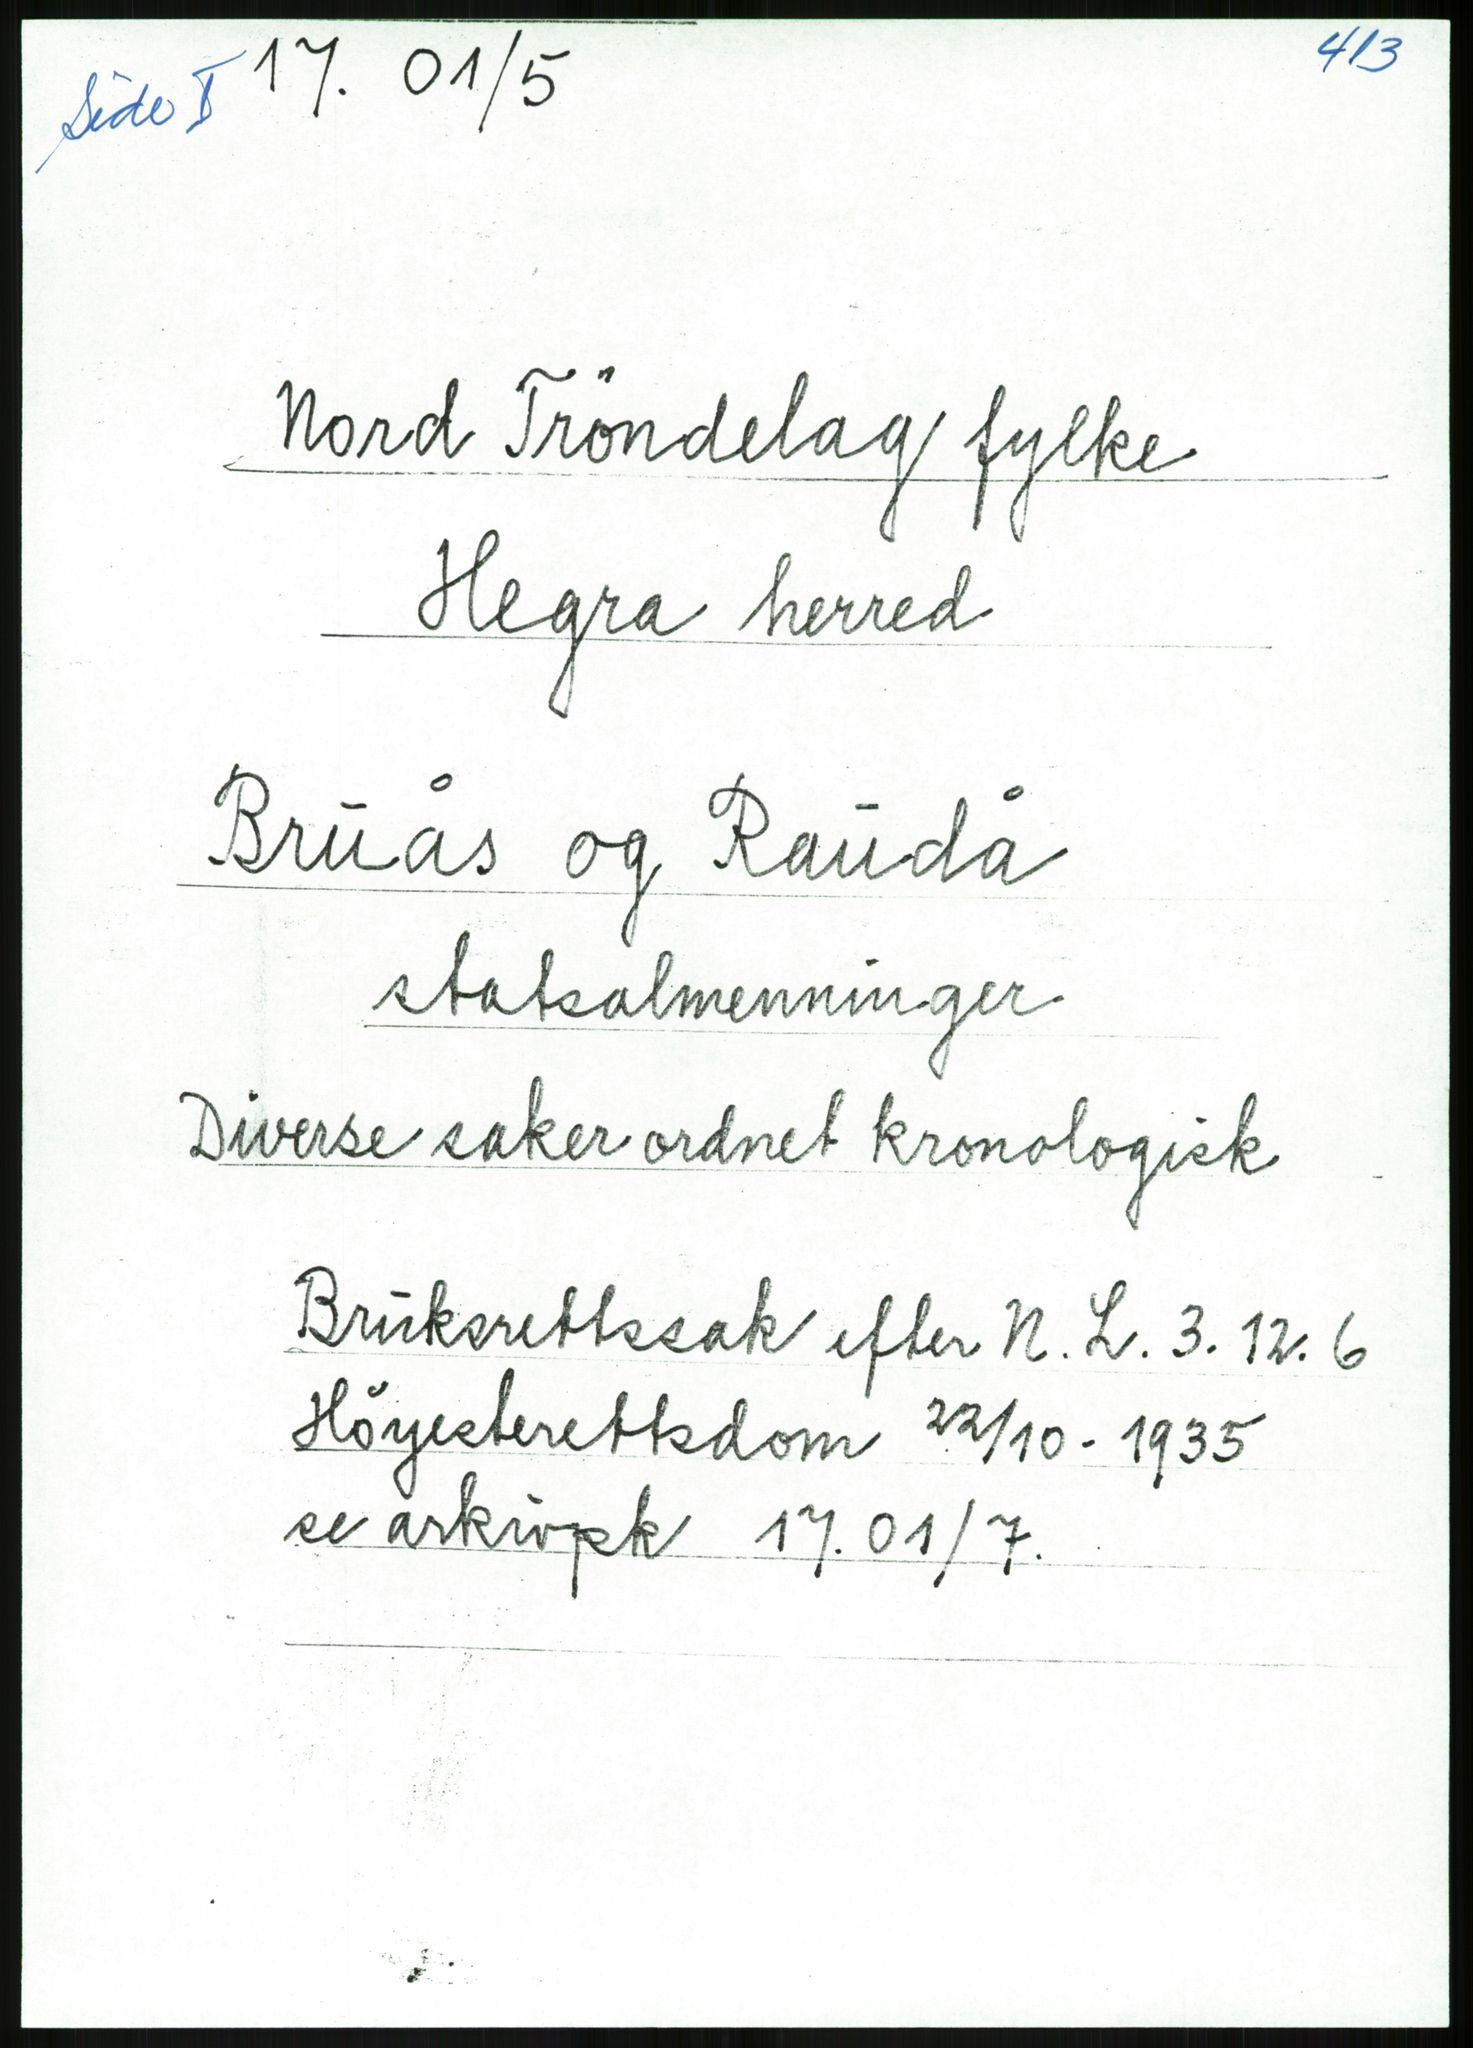 413
Side I 17. 01/5
Nord Tröndelag fylke
Hegra herred
Bruås og Raudå
statsalmenninger
Diverse saker ordnet kronologisk
Bruksrettssak efter N. L. 3. 12. 6
Höyesterettsdom 22/10 - 1935
se arkivpk 17. 01/7.